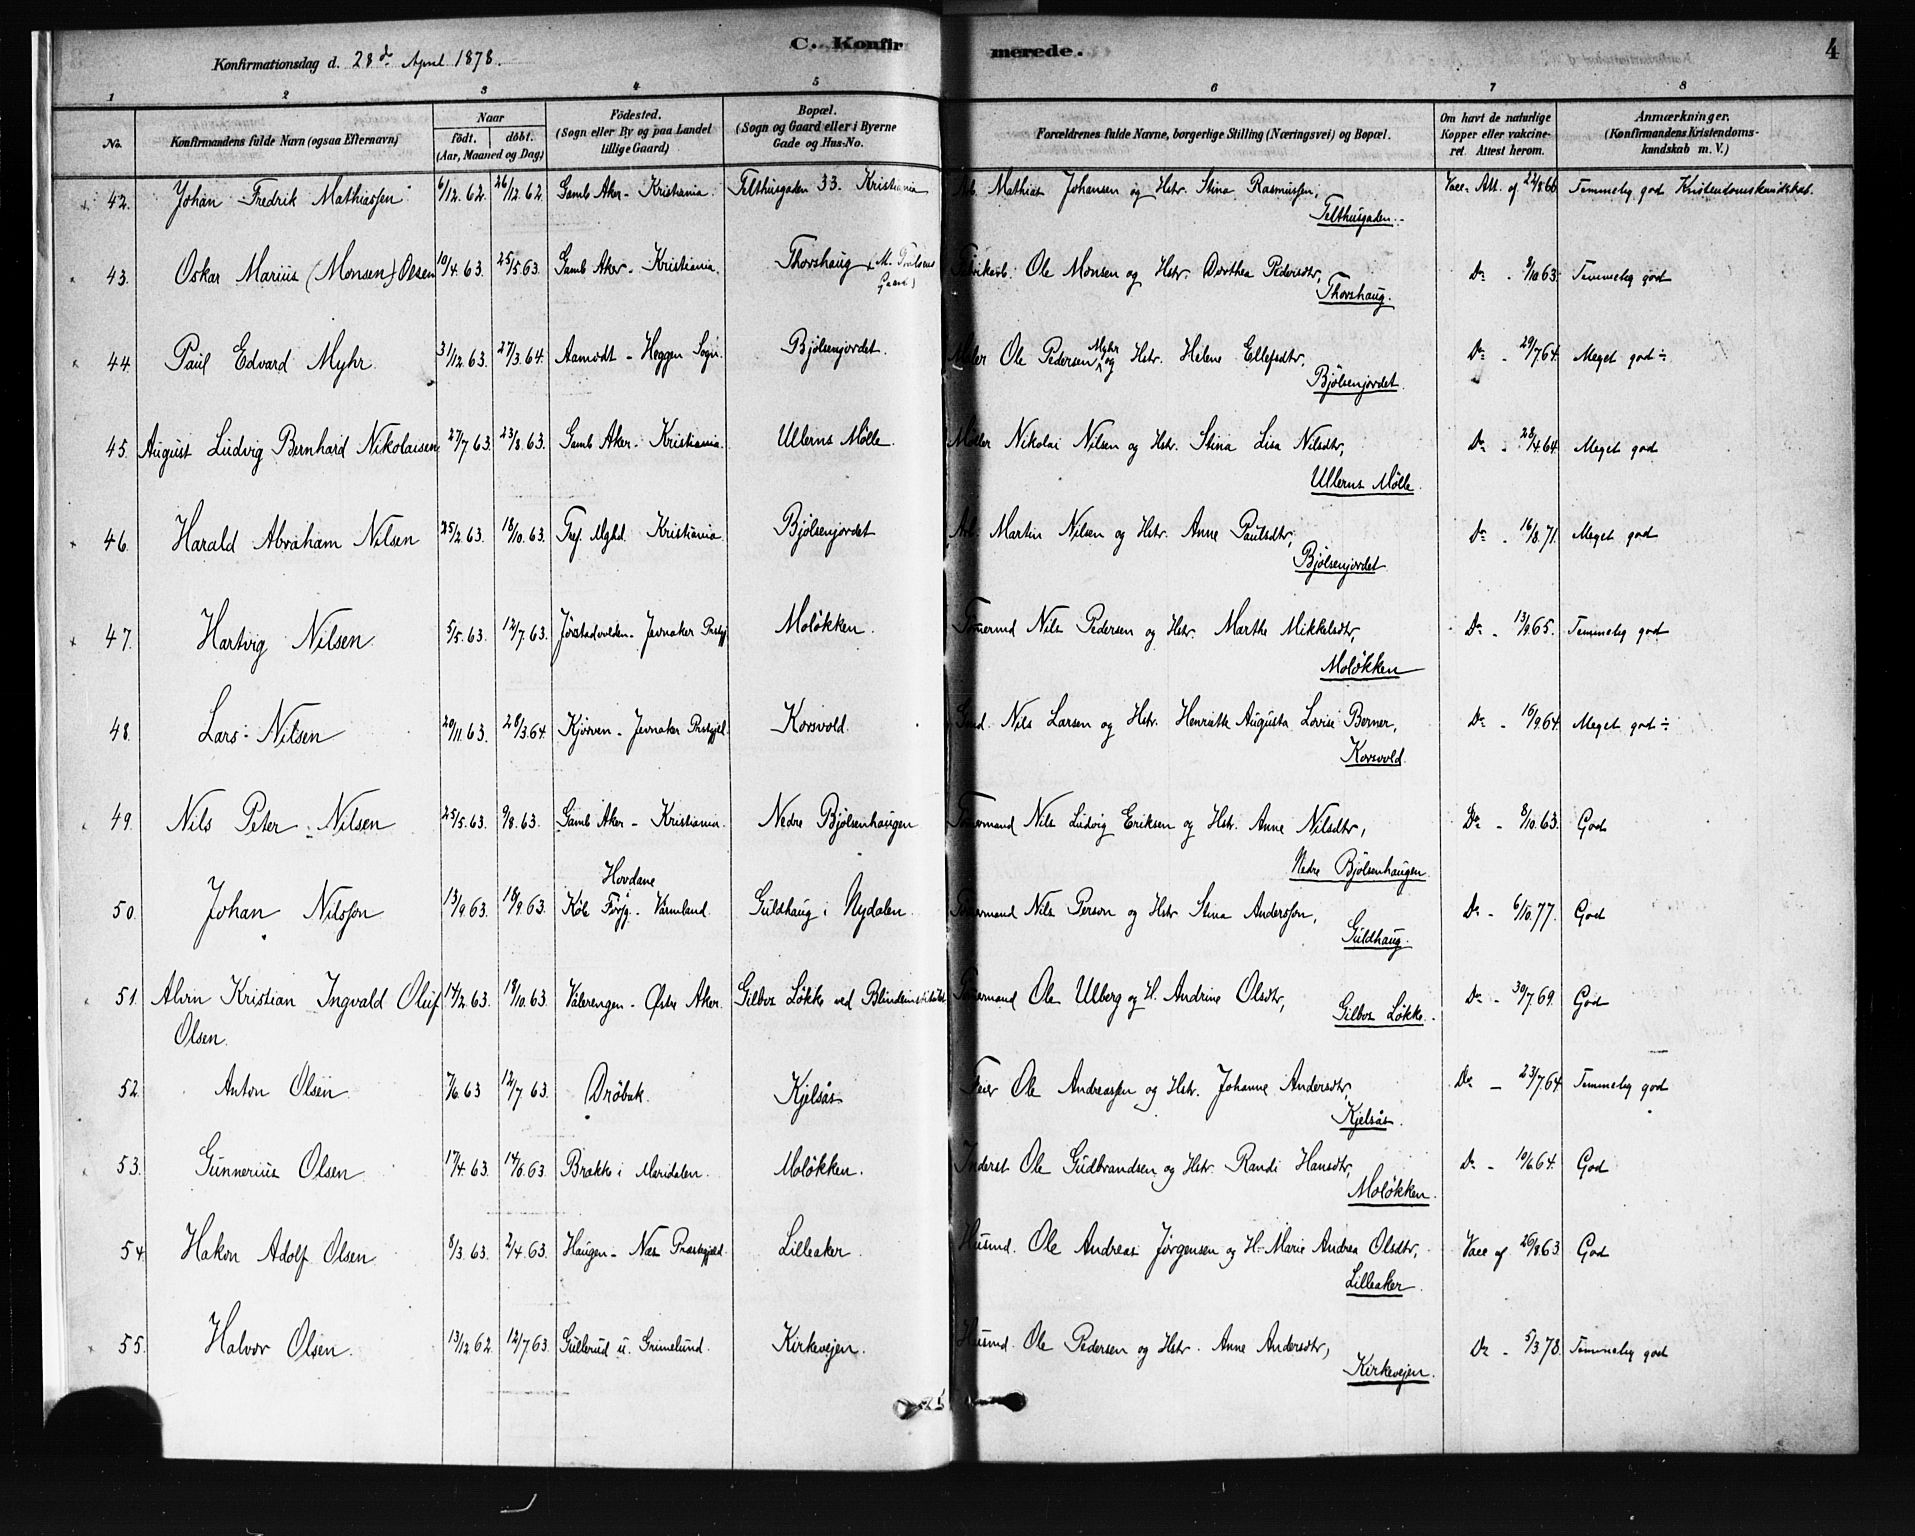 C. Konfirmerede. 4
Konfirmationsdag d. 28de April 1878.
1 2 3 4 5 6 7 8
No. Konfirmandens fulde Navn (ogsaa Efternavn) Naar Födt. döbt. (Aar, Maaned og Dag) Födested. (Sogn eller By og paa Landet tillige Gaard) Bopæl. (Sogn og Gaard eller i Byerne Gade og Hus-No. Forældrenes fulde Navne, borgerlige Stilling (Næringsvei) og Bopæl. Om havt de naturlige Kopper eller vakcineret. Attest herom. Anmærkninger. (Konfirmandens Kristendomskundskab m. V.)
42. Johan Fredrik Mathiassen 6/12 62. 26/12 62 Gamb Aker - Kristiania Telthusgaden 33. Kristiania Arb. Mathias Johansen og Hstr. Stina Rasmussen, Vacc. Att. af 22/8 66 Temmelig god Kristendomskundskab.
Telthusgaden.
43. Oskar Marius (Monsen) Olsen 10/4. 63. 25/5 63. Gamb Aker - Kristiania. Thorshaug Fabrikarb. Ole Monsen og Hstr. Dorthea Pedersdtr, Do - 8/10 63. Temmelig god
Thorshaug.
44 Paul Edvard Myhr 31/12. 63. 27/3. 64. Aamodt - Heggen Sogn. Bjölsenjordet. Ole Pedersen Myhr og Hstr. Helene Ellefsdtr, Do - 29/7 64. Meget god ÷
Bjölsenjordet.
45. August Ludvig Bernhard Nikolaisen 27/7 63. 23/8 63. Gamb Aker - Kristiania. Ullerns Mölle. Möller Nikolai Nilsen og Hstr. Stina Lisa Nilsdtr, Do - 28/4 64. Meget god
Ullerns Mölle.
46. Harald Abraham Nilsen 25/2 63. 18/10. 63. Tref. Mghd. Kristiania Bjölsenjordet Arb. Martin Nilsen og Hstr. Anne Paulsdtr, Do - 16/8. 71. Meget god
Bjölsenjordet
47. Hartvig Nilsen 5/5. 63. 12/7. 63. Jevnaker Prstgj. Molökken. Nils Pedersen og Hstr. Marthe Mikkelsdtr, Do - 13/9. 65. Temmelig god
Molökken
48. Lars Nilsen 20/11 63. 28/3 64 Kjörven - Jevnaker Prstgjel. Korsvold. Nils Larsen og Hstr. Henriette Augusta Lovise Berner, Do - 16/9 64. Meget god ÷
Korsvold.
49. Nils Peter Nilsen 25/5. 63. 9/8. 63. Gamb Aker - Kristiania. Nedre Bjölsenhaugen Tömermand Nils Ludvig Eriksen og Hstr. Anne Nilsdtr, Do - 8/10. 63. God
Nedre Bjölsenhaugen
50. Johan Nilsson 13/9. 63. 18/9. 63. Hovdane Köle Forsg. Värmland. Guldhaug i Nydalen. Tömermand Nils Person og Hstr Stina Andersson, Do - 6/10. 77. God
Guldhaug.
51. Alvin Kristian Ingvald Oluf Olsen. 14/2. 63. 18/10. 63. Välerengen - Östre Aker. Gilbos Lökke ved Blindeinstitutet Tömermand Ole Ulberg og H. Andrine Olsdtr, Do - 30/7 69. God
Gilbos Lökke.
52. Anton Olsen 7/6. 63 12/7. 63. Dröbak. Kjelsås Feier Ole Andreassen og Hstr. Johanne Andersdtr, Do - 23/7 64 Temmelig god
Kjelsås.
53. Gunnerius Olsen 17/4. 63. 14/6. 63 Brække i Maridalen. Molökken. Inderst Ole Gudbrandsen og Hstr. Randi Hansdtr, Do - 10/6 64. God
Molökken.
54 Hakon Adolf Olsen 8/3. 63. 2/4. 63. Haugen - Næs Præstegjæld. Lilleaker. Husmd. Ole Andreas Jörgensen og H. Marie Andrea Olsdtr, Vacc af 26/8 63. God
Lilleaker
55. Halvor Olsen. 13/12 62. 12/7 63. Gullerud u. Grimelund. Kirkevejen. Husmd. Ole Pedersen og Hstr. Anne Andersdtr, Do - 5/3 78. Temmelig god
Kirkevejen.